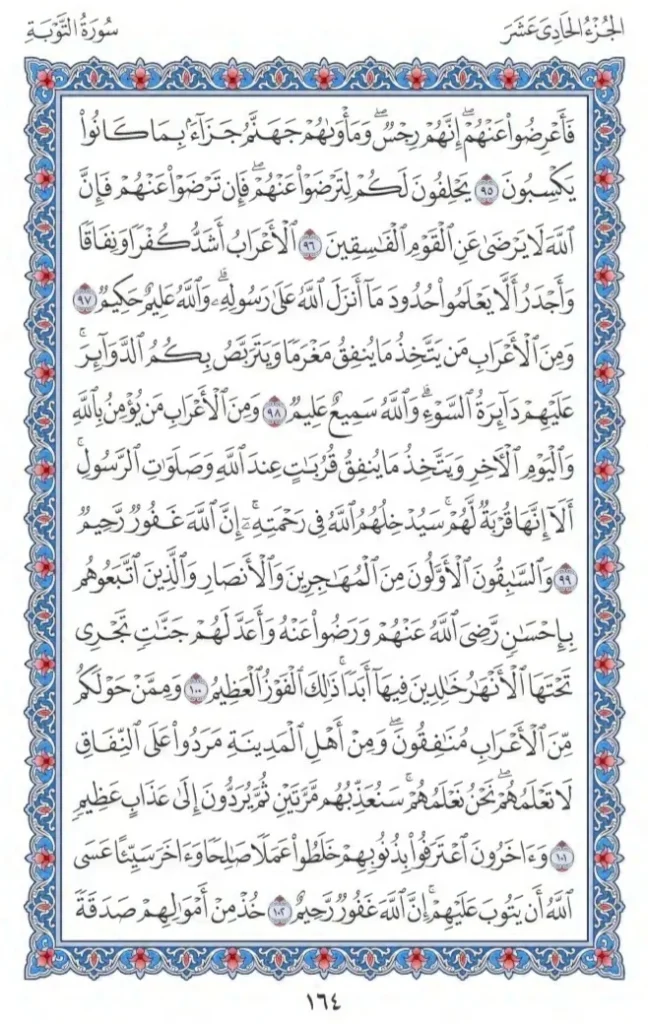 الجُزْءُ الحَادِى عَشَرَ
سُورَةُ التَّوْبَةِ
فَأَعْرِضُوا۟ عَنْهُمْ ۖ إِنَّهُمْ رِجْسٌ ۖ وَمَأْوَىٰهُمْ جَهَنَّمُ جَزَآءًۢ بِمَا كَانُوا۟
يَكْسِبُونَ ٩٥ يَحْلِفُونَ لَكُمْ لِتَرْضَوْا۟ عَنْهُمْ ۖ فَإِن تَرْضَوْا۟ عَنْهُمْ فَإِنَّ
ٱللَّهَ لَا يَرْضَىٰ عَنِ ٱلْقَوْمِ ٱلْفَٰسِقِينَ ٩٦ ٱلْأَعْرَابُ أَشَدُّ كُفْرًا وَنِفَاقًا
وَأَجْدَرُ أَلَّا يَعْلَمُوا۟ حُدُودَ مَآ أَنزَلَ ٱللَّهُ عَلَىٰ رَسُولِهِۦ ۗ وَٱللَّهُ عَلِيمٌ حَكِيمٌ ٩٧
وَمِنَ ٱلْأَعْرَابِ مَن يَتَّخِذُ مَا يُنفِقُ مَغْرَمًا وَيَتَرَبَّصُ بِكُمُ ٱلدَّوَآئِرَ ۚ
عَلَيْهِمْ دَآئِرَةُ ٱلسَّوْءِ ۗ وَٱللَّهُ سَمِيعٌ عَلِيمٌ ٩٨ وَمِنَ ٱلْأَعْرَابِ مَن يُؤْمِنُ بِٱللَّهِ
وَٱلْيَوْمِ ٱلْءَاخِرِ وَيَتَّخِذُ مَا يُنفِقُ قُرُبَٰتٍ عِندَ ٱللَّهِ وَصَلَوَٰتِ ٱلرَّسُولِ ۚ
أَلَآ إِنَّهَا قُرْبَةٌ لَّهُمْ ۚ سَيُدْخِلُهُمُ ٱللَّهُ فِى رَحْمَتِهِۦٓ ۗ إِنَّ ٱللَّهَ غَفُورٌ رَّحِيمٌ
٩٩ وَٱلسَّٰبِقُونَ ٱلْأَوَّلُونَ مِنَ ٱلْمُهَٰجِرِينَ وَٱلْأَنصَارِ وَٱلَّذِينَ ٱتَّبَعُوهُم
بِإِحْسَٰنٍ رَّضِىَ ٱللَّهُ عَنْهُمْ وَرَضُوا۟ عَنْهُ وَأَعَدَّ لَهُمْ جَنَّٰتٍ تَجْرِى
تَحْتَهَا ٱلْأَنْهَٰرُ خَٰلِدِينَ فِيهَآ أَبَدًا ۚ ذَٰلِكَ ٱلْفَوْزُ ٱلْعَظِيمُ ١٠٠ وَمِمَّنْ حَوْلَكُم
مِّنَ ٱلْأَعْرَابِ مُنَٰفِقُونَ ۖ وَمِنْ أَهْلِ ٱلْمَدِينَةِ مَرَدُوا۟ عَلَى ٱلنِّفَاقِ
لَا تَعْلَمُهُمْ ۖ نَحْنُ نَعْلَمُهُمْ ۚ سَنُعَذِّبُهُم مَّرَّتَيْنِ ثُمَّ يُرَدُّونَ إِلَىٰ عَذَابٍ عَظِيمٍ
١٠١ وَءَاخَرُونَ ٱعْتَرَفُوا۟ بِذُنُوبِهِمْ خَلَطُوا۟ عَمَلًا صَٰلِحًا وَءَاخَرَ سَيِّئًا عَسَى
ٱللَّهُ أَن يَتُوبَ عَلَيْهِمْ ۚ إِنَّ ٱللَّهَ غَفُورٌ رَّحِيمٌ ١٠٢ خُذْ مِنْ أَمْوَٰلِهِمْ صَدَقَةً
١٦٤